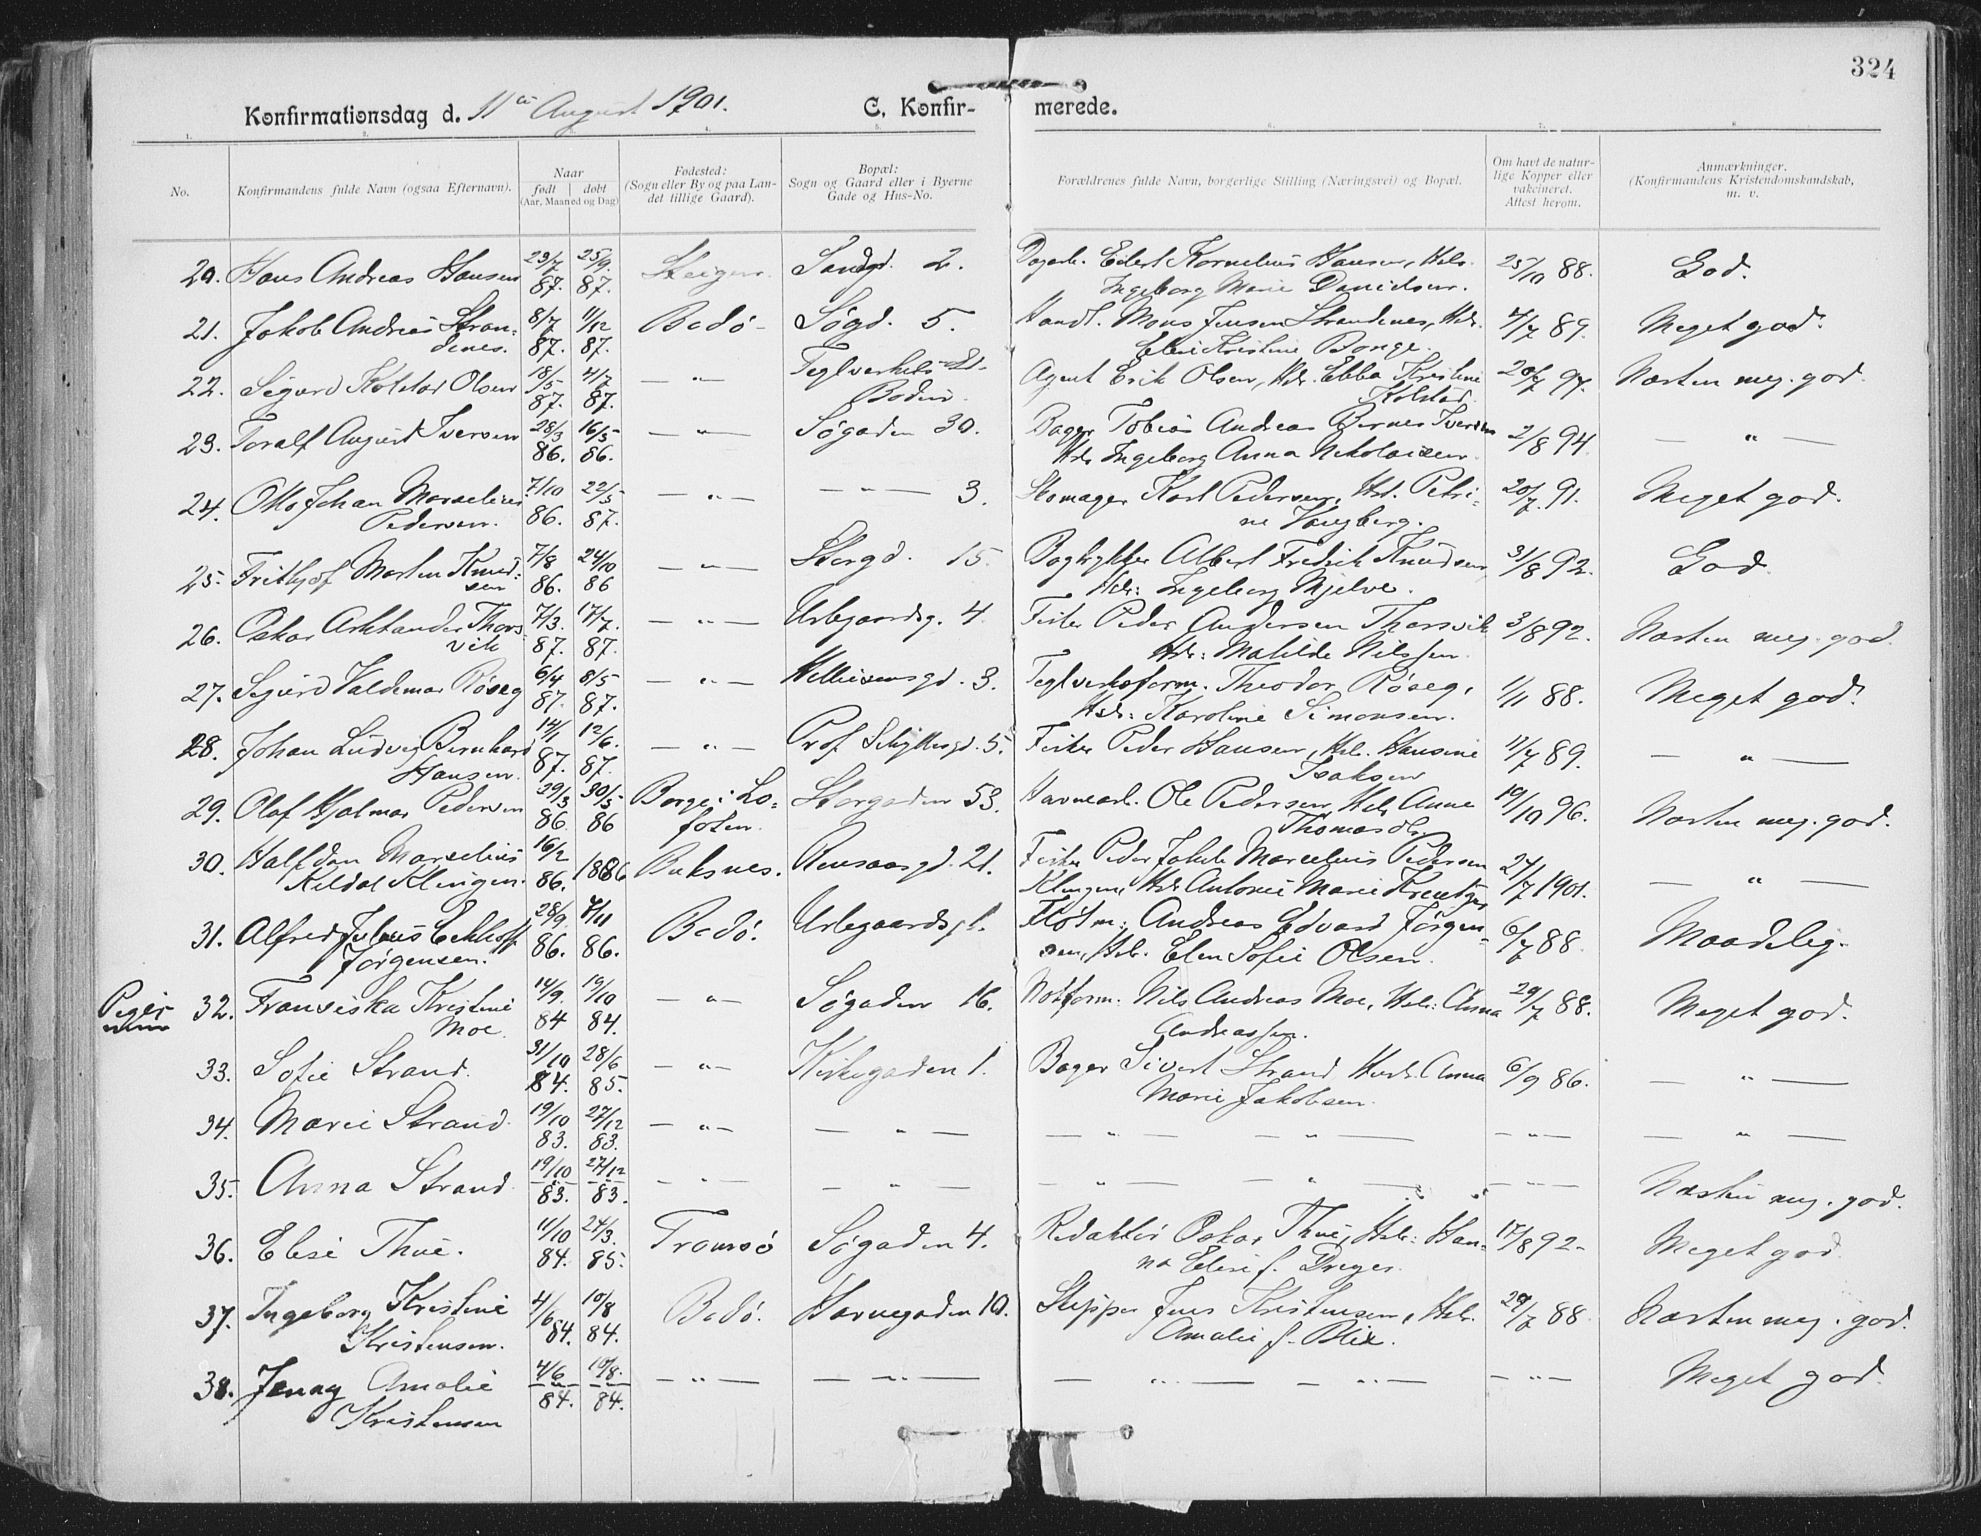 324
Konfirmationsdag d. 11te August 1901. C. Konfir- merede.
1. 2. 3. 4. 5. 6. 7. 8.
No. Konfirmandens fulde Navn (ogsaa Efternavn). Naar født døbt (Aar, Maaned og Dag) Fødested: (Sogn eller By og paa Landet tillige Gaard). Bopæl: Sogn og Gaard eller i Byerne Gade og Hus-No. Forældrenes fulde Navn, borgerlige Stilling (Næringsvei) og Bopæl. Om havt de naturlige Kopper eller vakcineret. Attest herom. Anmærkninger. (Konfirmandens Kristendomskundskab, m. v.
20. Hans Andreas Hansen 23/7 87. 25/9 87. Steigen Sandgd. 2. Dagarb. Edert Kornelius Hansen, Hstr. 25/10 88. God.
Ingeborg Marie Danielsen.
21. Jakob Andreas Stran- 8/7 87. 11/12 87. Bodö Søgd. 5. Handl. Mons Jensen Strandenes, Hstr. 4/7 89. Meget god.
denes. Elen Kristine Bonge.
22. Sigurd Kolstad Olsen 18/5 87. 4/7 87. — " — Teglverket Bodin. Agent Erik Olsen, Hstr. Ebba Kristine 20/7 97. Næsten meg. god.
Kolstad.
23. Toralf August Iversen 28/3 86. 16/5 86. — " — Søgaden 30. Bager Tobias Andreas Bernes Iversen 2/8 94. — " —
Hstr. Ingeborg Anna Nikolaisen.
24. Otto Johan Marselius 7/10 86. 22/5 87. — " — — " — 3. Skomager Karl Pedersen, Hst. Petri- 20/7 91. Meget god.
Pedersen. ne Haugberg.
25. Frithjof Morten Knud- 7/8 86. 24/10 86 — " — Storgd. 15. Bogtrykker Albert Fredrik Knudsen, 31/8 92. God.
sen Hstr: Ingeborg Mjelve.
26. Oskar Arktander Thors- 7/3. 87. 17/7. 87. — " — Urbgaardsg. 4. Fisker Peder Andersen Thorsvik 3/8 92. Næsten meg. god
vik Hstr: Matilde Nilssen.
27. Sigurd Valdemar Røseg 6/4 87. 8/5 87. — " — Hellriesensgd. 3. Teglverksform. Theodor Røseg, 1/11 88. Meget god.
Hstr: Karoline Simonsen.
28. Johan Ludvig Bernhard 14/1 87. 12/6. 87. — " — Prof. Schyttesgd. 5. Fisker Peder Hansen, Hstr. Hansine 11/7 89. — " —
Hansen. Isaksen
29. Olaf Hjalmar Pedersen 29/3 86. 30/5 86 Borge i Lo- Storgaden 53. Havnearb. Ole Pedersen, Hstr. Anne 19/10 96. Næsten meg. god.
foten. Thomasdtr.
30. Halfdan Marselius 16/2 86. 1886 Buksnes. Rensaasgd. 21. Fisker Peder Jakob Marcelius Pedersen 27/7 1901. — " —
Kildal Klingen. Klingen, Hstr. Antonie Marie Kreutzer
31. Alfred Julius Eckhoff 28/9 86. 7/11 86. Bodö. Urbgaardsg 1. Flötm. Andreas Edvard Jørgen- 6/7 88. Maadelig.
Jørgensen. sen, Hstr. Elen Sofie Olsen.
Piger 32. Fransiska Kristine 14/9. 84 19/10 84. — " — Søgaden 16. Notform. Nils Andreas Moe, Hstr: Anna 29/7 88. Meget god.
Moe. Andreassen.
33. Sofie Strand. 31/10 84. 28/6 85. — " — Kirkegaden 1. Bager Sivert Strand Hustr. Anna 6/9 86. — " —
Marie Jakobsen.
34. Marie Strand. 19/10 83. 27/12 83. — " — — " — — " — — " — — " — — " —
35. Anna Strand. 19/10 83. 27/12 83. — " — — " — — " — — " — — " — Næsten meg. god.
36. Elise Thue. 11/10 84. 24/3. 85. Tromsö Søgaden 4. Redaktör Oskar Thue, Hstr: Han- 17/8 92. Meget god
na Elise f. Dreyer.
37. Ingeborg Kristine 4/6 84. 10/8 84. Bodö. Havnegaden 10. Skipper Jens Kristensen, Hstr. 29/7 88. Næsten meg. god.
Kristensen. Amalie f. Blix.
38. Jenny Amalie 4/6 84. 10/8. 84. — " — — " — — " — — " — — " — Meget god.
Kristensen